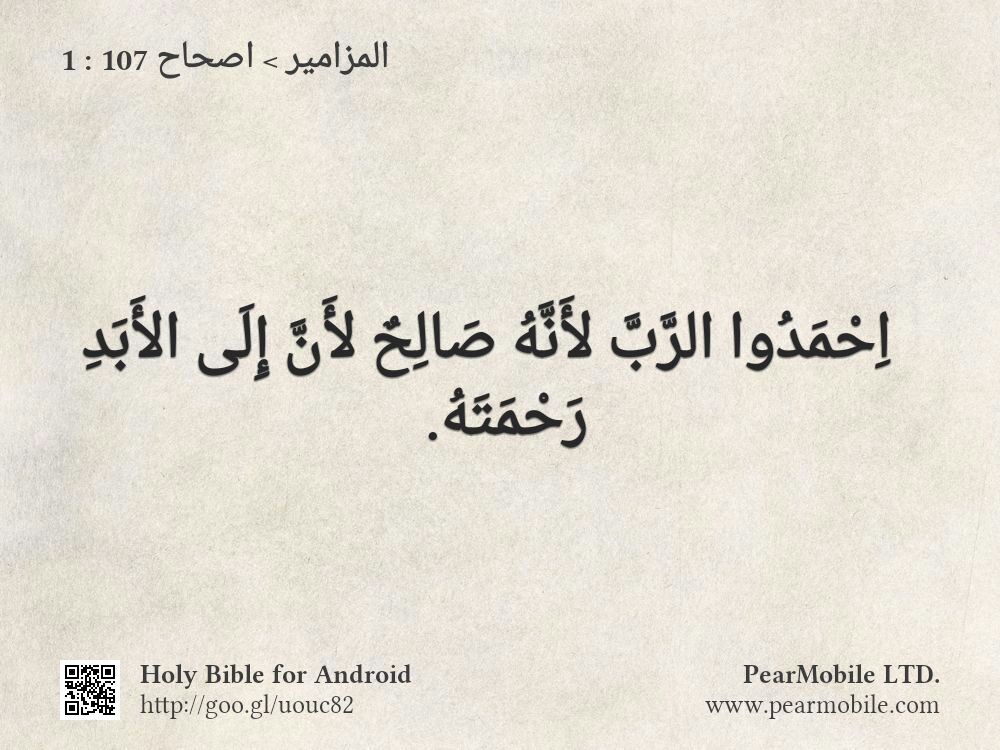 المزامير > اصحاح 107 : 1
اِحْمَدُوا الرَّبَّ لأَنَّهُ صَالِحٌ لأَنَّ إِلَى الأَبَدِ
رَحْمَتَهُ.
Holy Bible for Android
http://goo.gl/uouc82
PearMobile LTD.
www.pearmobile.com